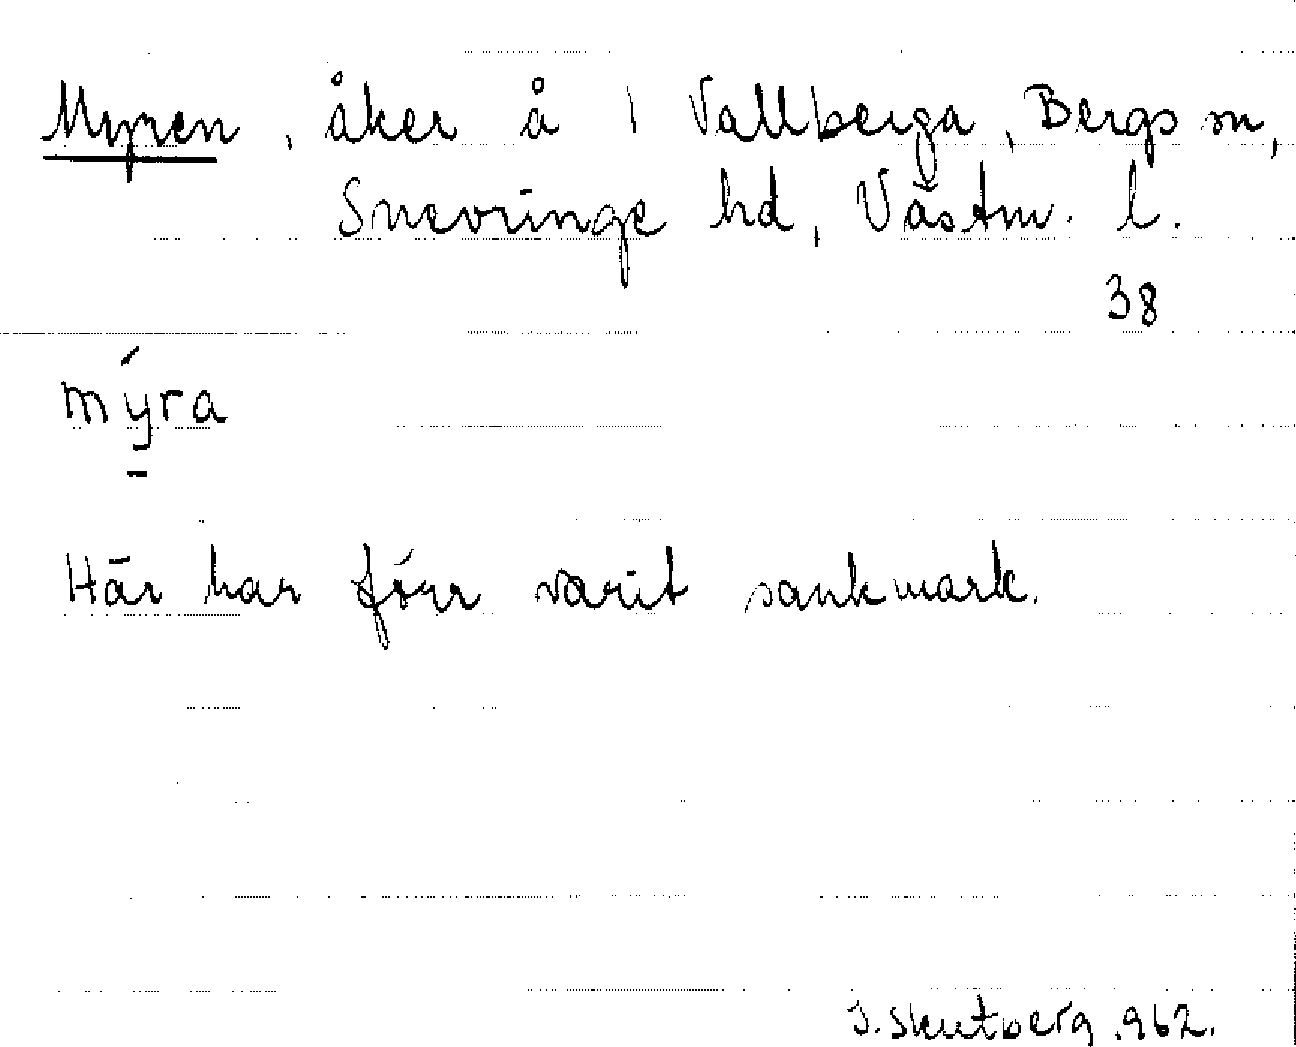 Myren, åker å 1 Vallberga, Bergs sn,
Snevringe hd, Västm. l.
38
mýra
Här har förr varit sankmark.
J. Skutberg 1962.